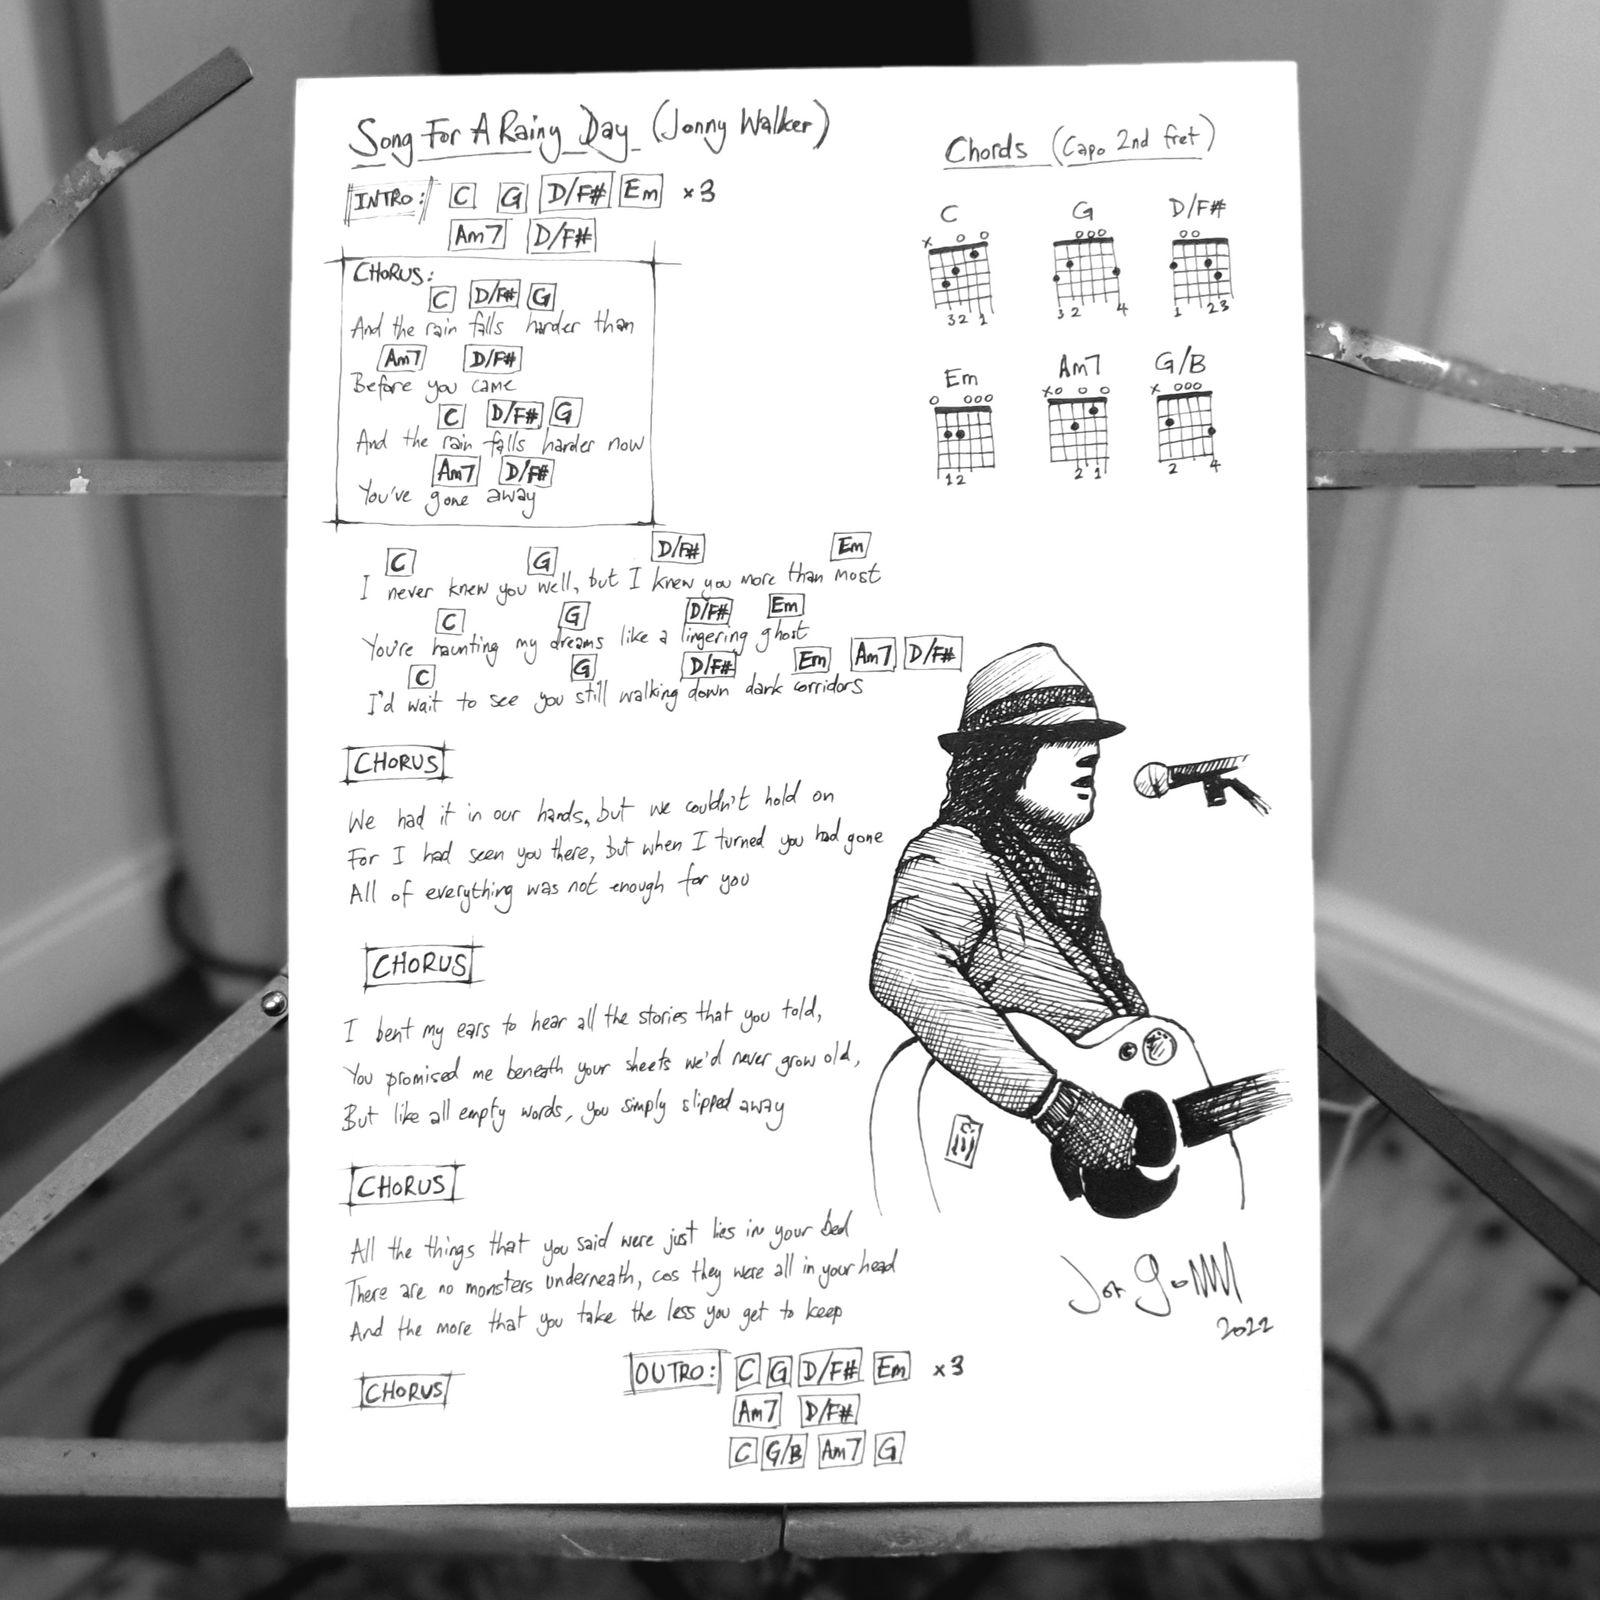 Song For A Rainy Day (Jonny Walker)
INTRO: C G D/F# Em x3
Am7 D/F#
CHORUS:
C D/F# G
And the rain falls harder than
Am7 D/F#
Before you came
C D/F# G
And the rain falls harder now
Am7 D/F#
You've gone away
Chords (Capo 2nd fret)
C G D/F#
x o o ooo oo
32 1 32 4 1 23
Em Am7 G/B
o ooo xo o o x ooo
12 21 2 4
C G D/F# Em
I never knew you well, but I knew you more than most
C G D/F# Em
You're haunting my dreams like a lingering ghost
C G D/F# Em Am7 D/F#
I'd wait to see you still walking down dark corridors
CHORUS
We had it in our hands, but we couldn't hold on
For I had seen you there, but when I turned you had gone
All of everything was not enough for you
CHORUS
I bent my ears to hear all the stories that you told,
You promised me beneath your sheets we'd never grow old,
But like all empty words, you simply slipped away
CHORUS
All the things that you said were just lies in your bed
There are no monsters underneath, cos they were all in your head
And the more that you take the less you get to keep
CHORUS
OUTRO: C G D/F# Em x3
Am7 D/F#
C G/B Am7 G
2022